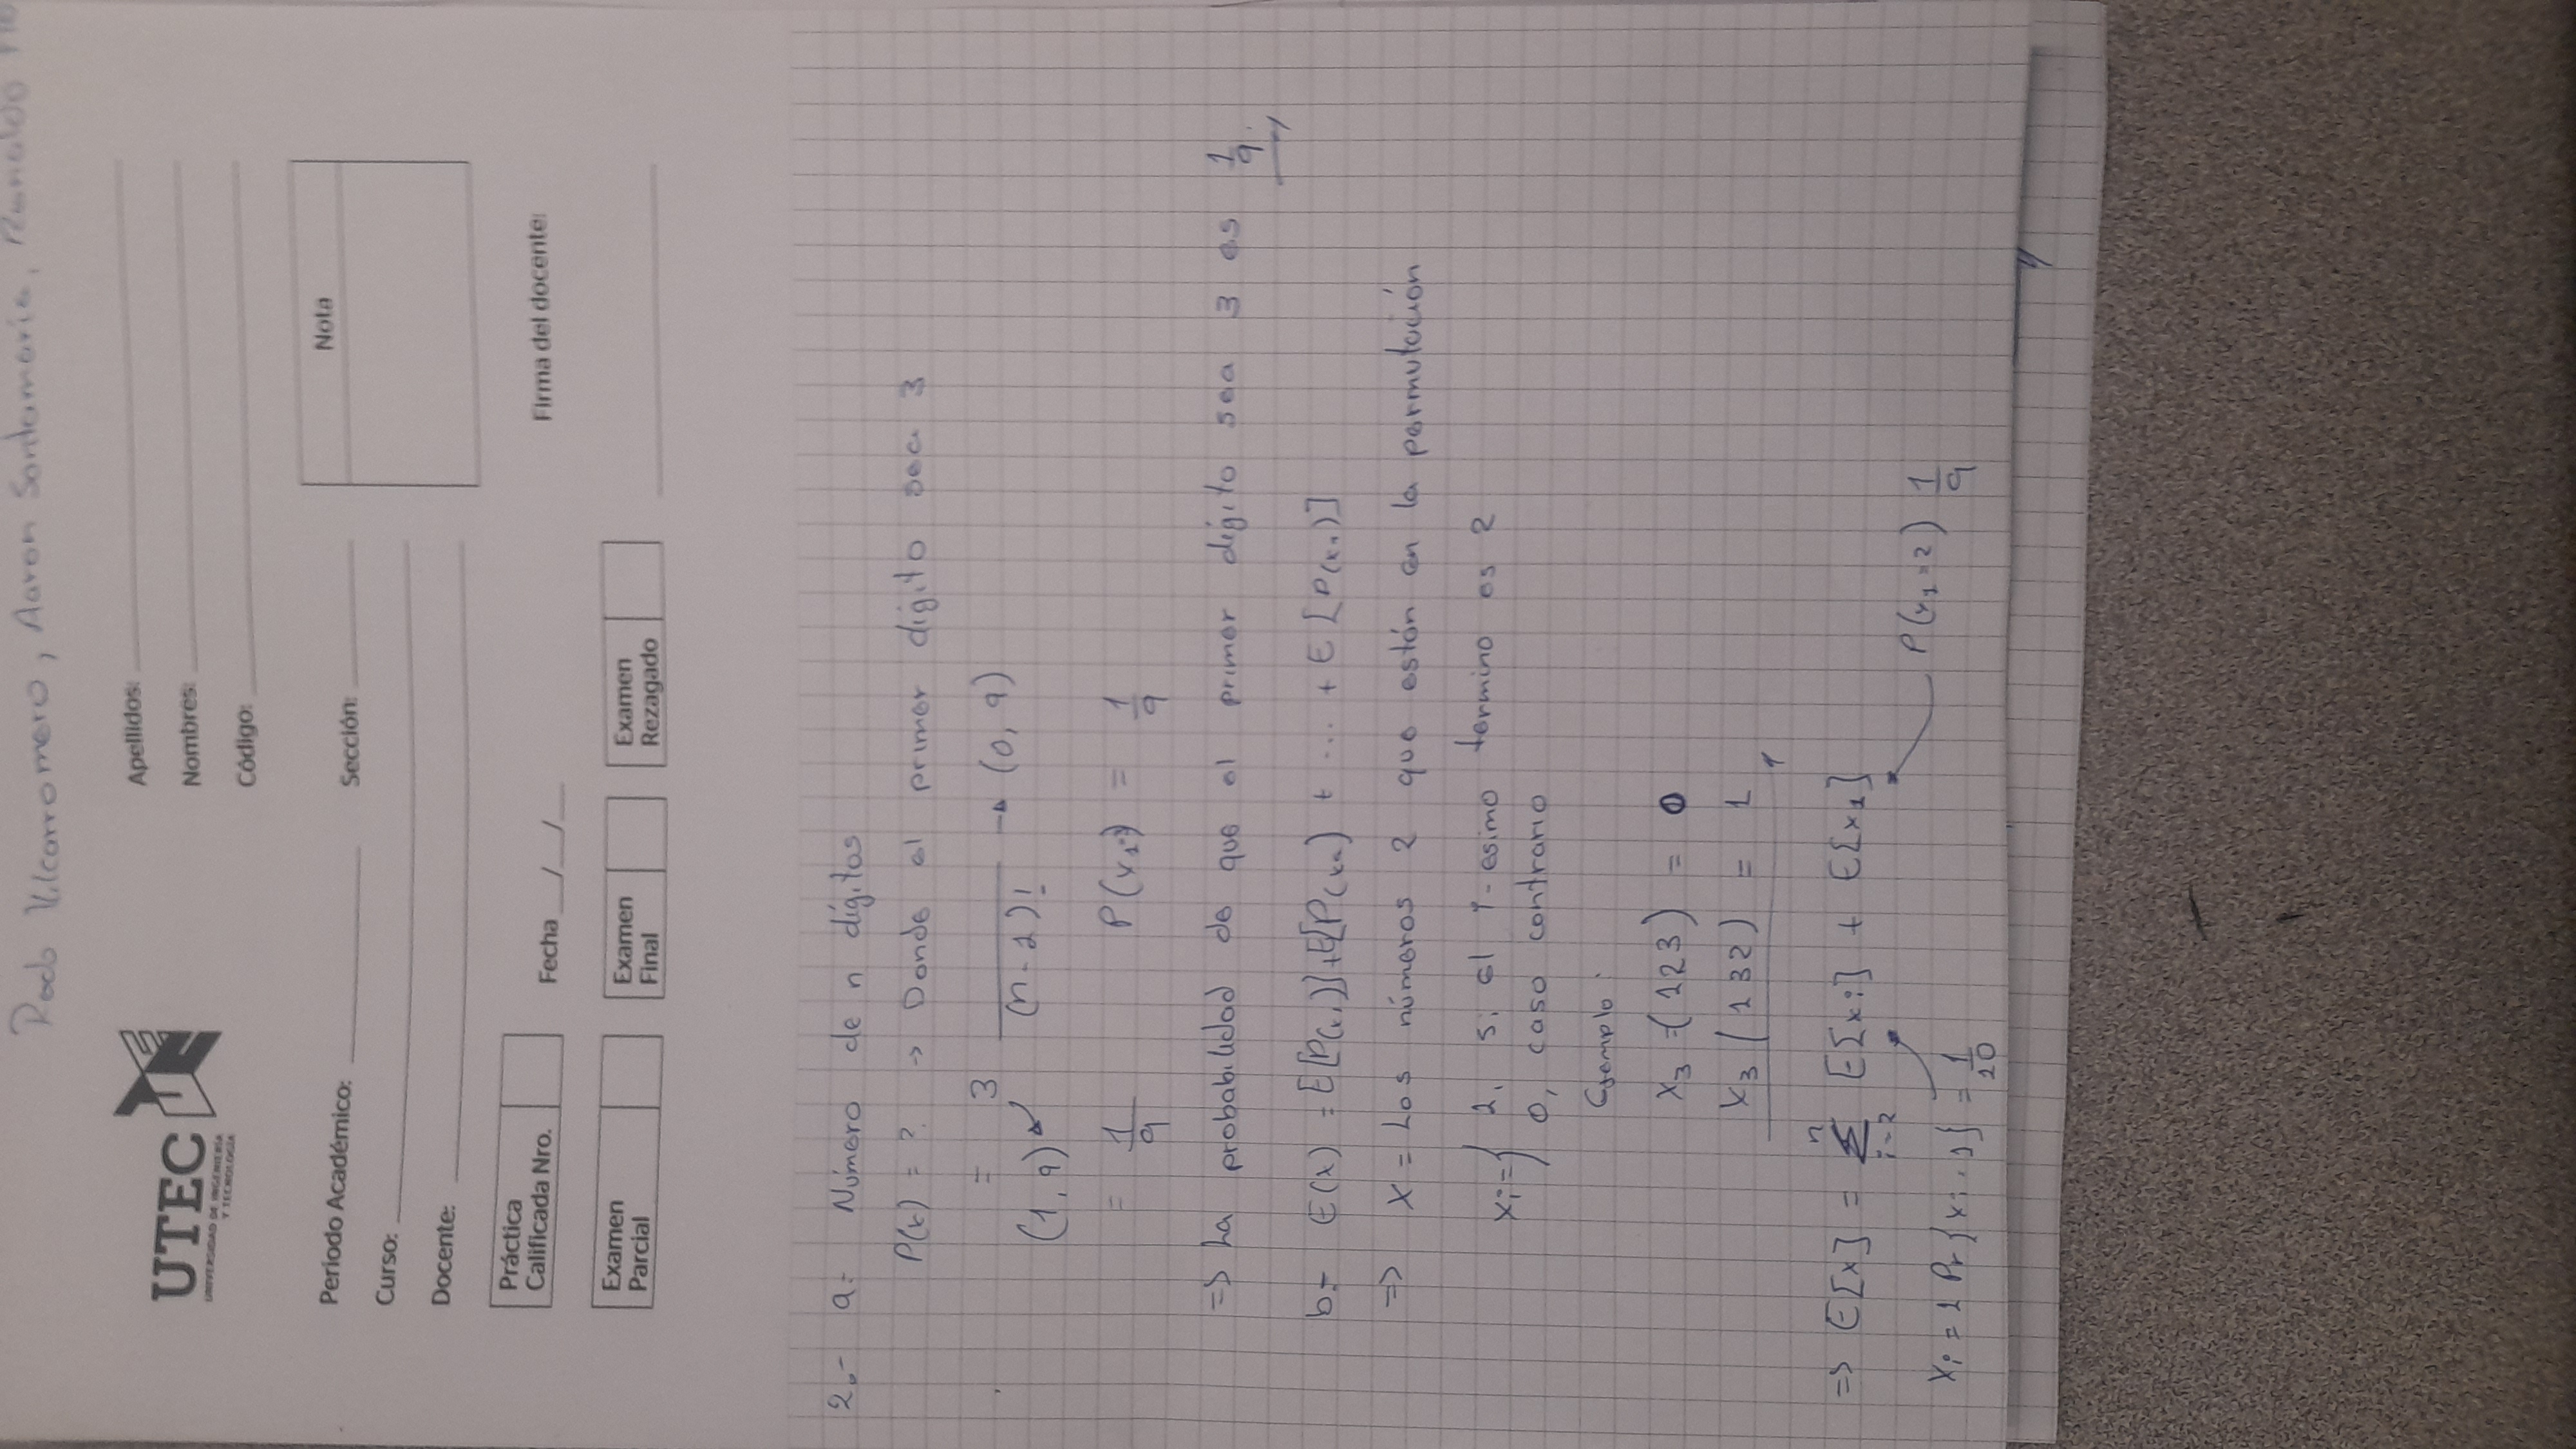 Vilcarromero, Aaron Santamaria, Ronaldo
UTEC
UNIVERSIDAD DE INGENIERÍA
Y TECNOLOGÍA
Apellidos:
Nombres:
Código:
Periodo Académico:
Sección:
Nota
Curso:
Docente:
Práctica
Calificada Nro.
Fecha __/__/__
Firma del docente:
Examen
Parcial
Examen
Final
Examen
Rezagado
2.- a.- Número de n dígitos
P(x) = ? → Donde el primer dígito sea 3
= 3 (n-1)! → (0, 9)
(1, 9)
= 1/9 P(x1=3) = 1/9
=> La probabilidad de que el primer dígito sea 3 es 1/9
b.- E(x) = E[P(x1)] + E[P(x2) + ... + E[P(xn)]
=> X = Los números 2 que están en la permutación
xi = { 1, si el i-esimo termino es 2
0, caso contrario
Ejemplo:
x3 =(123) = 0
x3 (132) = 1
=> E[x] = Σ n i=2 E[xi] + E[x1]
P(x1=2) 1/9
xi = 1 Pr{xi=1} = 1/10